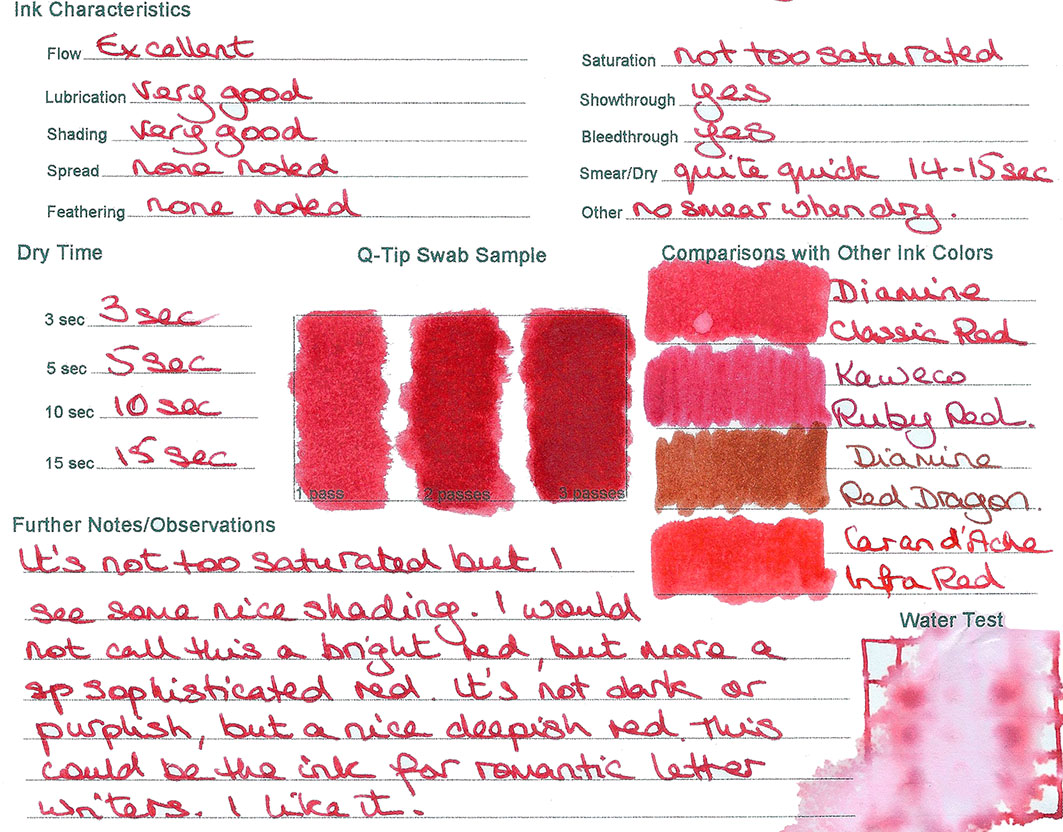 Ink Characteristics
Flow Excellent
Saturation not too saturated
Lubrication very good
Showthrough yes
Shading very good
Bleedthrough yes
Spread none noted
Smear/Dry quite quick 14-15 sec
Feathering none noted
Other no smear when dry.
Dry Time
3 sec 3 sec
5 sec 5 sec
10 sec 10 sec
15 sec 15 sec
Q-Tip Swab Sample
1 pass 2 passes 3 passes
Comparisons with Other Ink Colors
Diamine
Classic Red
Kaweco
Ruby Red.
Diamine
Red Dragon.
Caran d'Ache
Infra Red
Further Notes/Observations
It's not too saturated but I
see some nice shading. I would
not call this a bright red, but more a
sp sophisticated red. It's not dark or
purplish, but a nice deepish red. This
could be the ink for romantic letter
writers. I like it.
Water Test